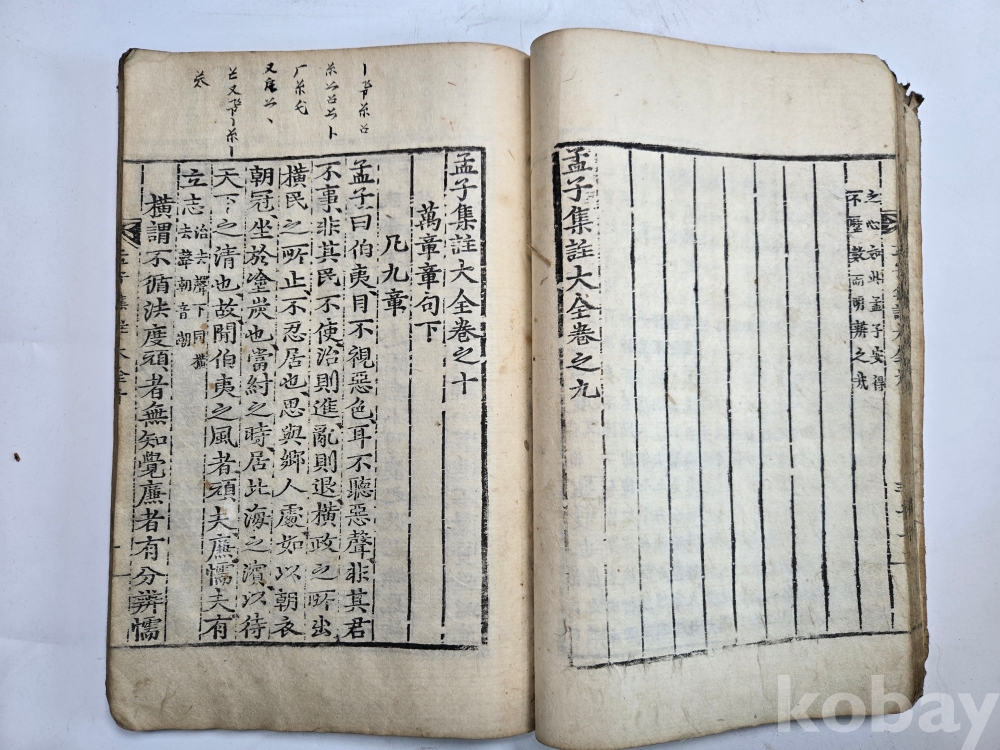 之心哉此孟子安得
不歷數而明辨之哉
孟子集註大全卷之九
孟子集註大全卷之十
萬章章句下
凡九章
孟子曰伯夷目不視惡色耳不聽惡聲非其君
不事非其民不使治則進亂則退橫政之所出
橫民之所止不忍居也思與鄉人處如以朝衣
朝冠坐於塗炭也當紂之時居北海之濱以待
天下之清也故聞伯夷之風者頑夫廉懦夫有
立志
治去聲下同橫
去聲朝音潮
橫謂不循法度頑者無知覺廉者有分辨懦
kobay